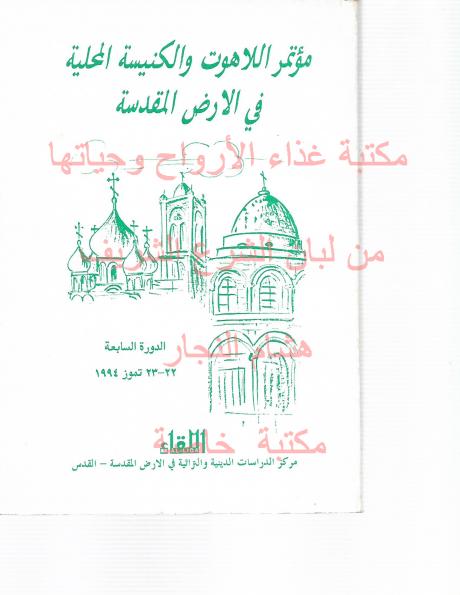 مؤتمر اللاهوت والكنيسة المحلية
في الارض المقدسة
مكتبة غذاء الأرواح وحياتها
من لباب الشرع الشريف
هشام النجار
الدورة السابعة
٢٢-٢٣ تموز ١٩٩٤
مكتبة خاصة
اللقاء
مركز الدراسات الدينية والتراثية في الارض المقدسة - القدس